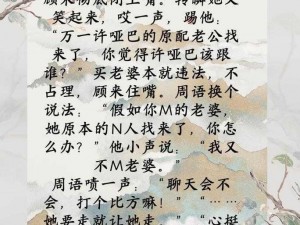 顾来彻底闭上眉。转瞬她又
笑起来，哎一声，踢他：
“万一许哑巴的原配老公找
来了，你觉得许哑巴该跟
谁？”买老婆本就违法，不
占理，顾来住嘴。周语换个
说法：“假如你M的老婆，
她原本的N人找来了，你怎
么办？”他小声说：“我又
不M老婆。”
周语啧一声：“聊天会不
会，打个比方嘛！”“……
她要走就让她走。”“心挺